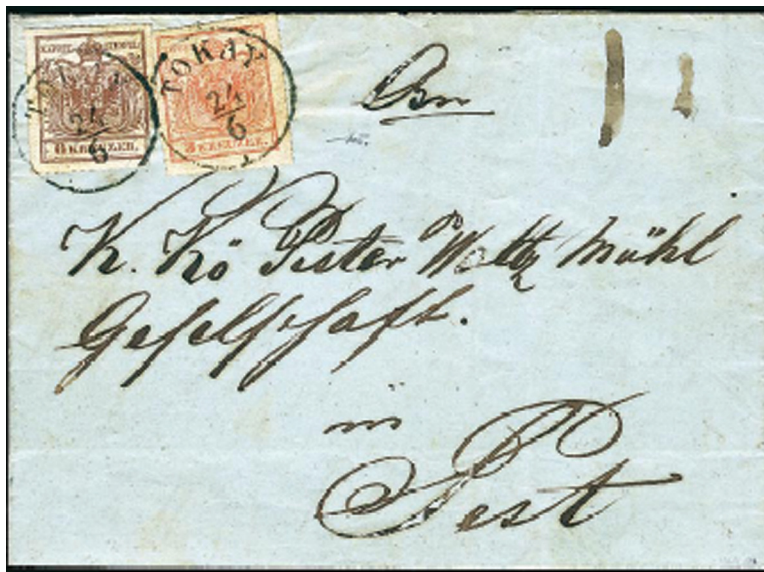 TOKAY
24
6
6 KREUZER.
TOKAY
24
6
3 KREUZER.
An
K. Kö Pester Waltz Mühl
Gesellschaft.
in
Pest